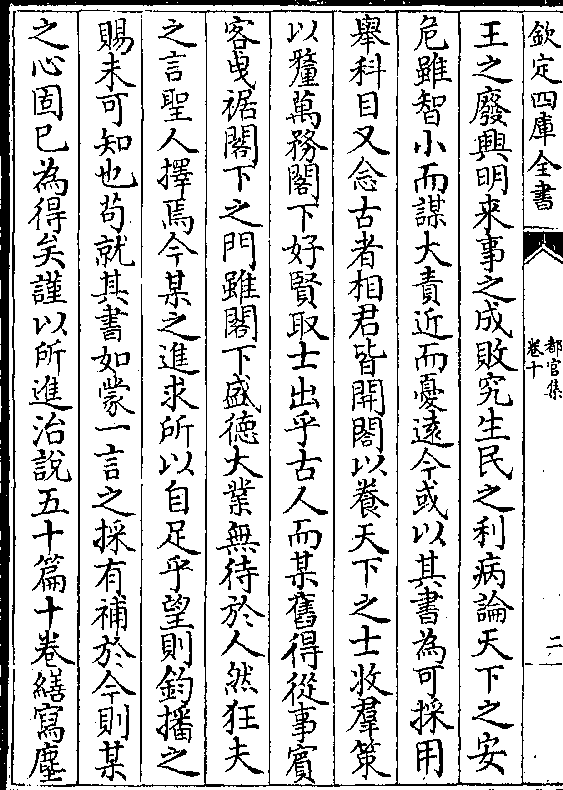 欽定四庫全書
都官集
卷十
二
王之廢興明来事之成敗究生民之利病論天下之安
危雖智小而謀大責近而憂遠今或以其書為可採用
舉科目又念古者相君皆開閣以養天下之士收羣策
以釐萬務閣下好賢取士出乎古人而某舊得從事賓
客曳裾閣下之門雖閣下盛徳大業無待於人然狂夫
之言聖人擇焉今某之進求所以自足乎望則鈞播之
賜未可知也茍就其書如蒙一言之採有補於今則某
之心固已為得矣謹以所進治説五十篇十卷繕寫塵